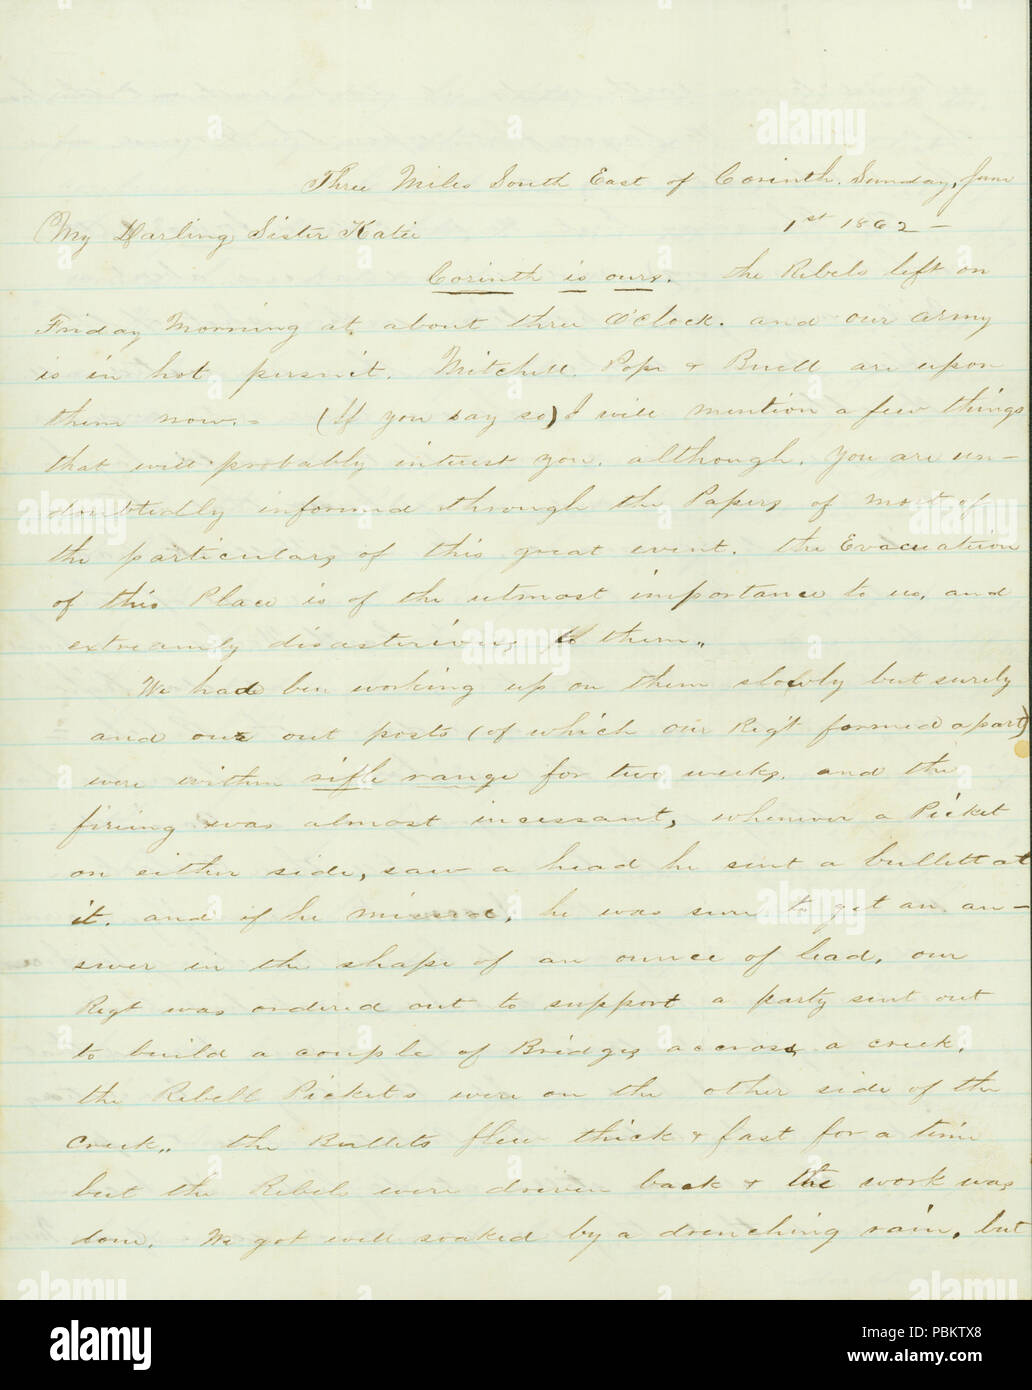 Three Miles South East of Corinth. Sunday, June
1st 1862 —
My Darling Sister Katie
Corinth is ours. the Rebels left on
Friday Morning at about three O'Clock. and our army
is in hot persuit. Mitchell. Pope & Buell are upon
them now. - (If you say so) I will mention a few things
that will probably interest you. although. You are un-
doubtedly informed through the Papers of most of
the particulars of this great event. the Evacuation
of this Place is of the utmost importance to us, and
extreamly to them..
We had ben working up on them slowly but surely
and our out posts (of which our Reg't formed a part)
were within rifle range for two weeks. and the
firing was almost incessant, whenever a Picket
on either side, saw a head he sent a bullett at
it. and if he missed, he was sure to get an an-
swer in the shape of an ounce of lead. our
Regt was ordered out to support a party sent out
to build a couple of Bridges accross a creek.
the Rebell Pickets were on the other side of the
Creek.. the Bullets flew thick & fast for a time
but the Rebels were driven back & the work was
done. We got well soaked by a drenching rain, but
alamy
a
alamy stock photo
PBKTX8
www.alamy.com